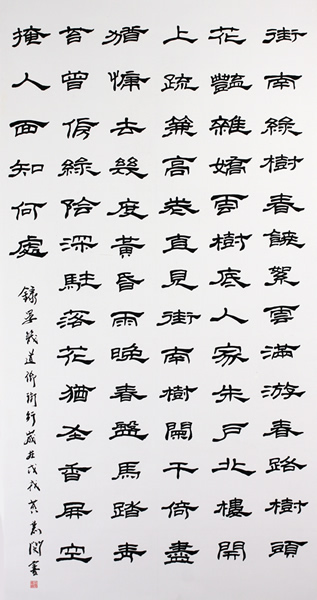 街南綠樹春饒絮雪滿游春路樹頭
花豔雜嬌雲樹底人家朱戶北樓閒
上疏簾高卷直見街南樹闌干倚盡
猶慵去幾度黃昏雨晚春盤馬踏青
苔曾傍綠陰深駐落花猶在香屏空
掩人面知何處
錄晏幾道御街行歲在戊戌黃書